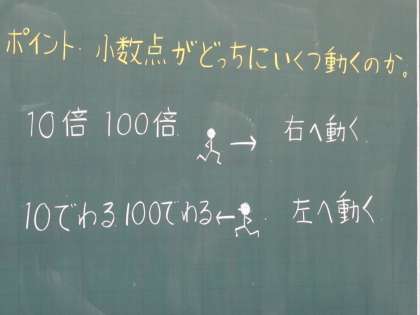 ポイント・小数点がどっちにいくつ動くのか。
10倍 100倍 → 右へ動く
10でわる 100でわる ← 左へ動く